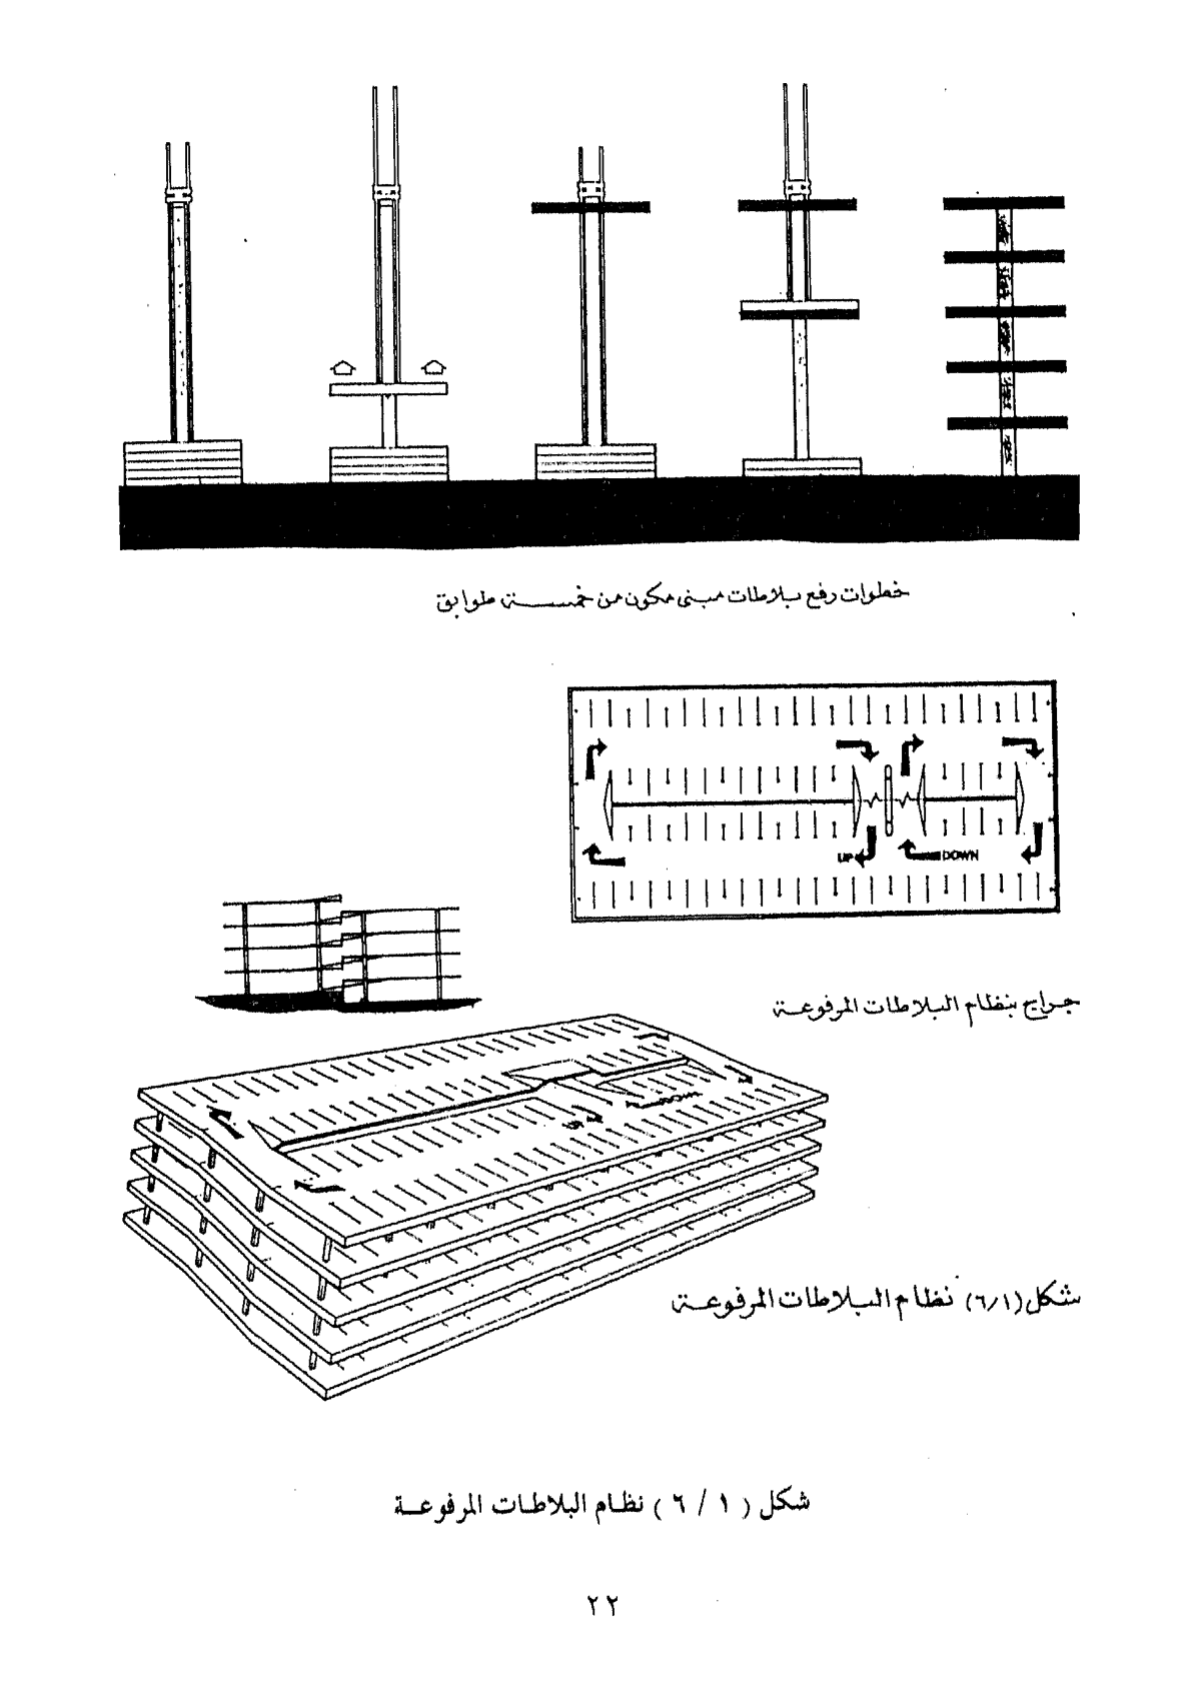 خطوات رفع بلاطات مبنى مكون من خمسة طوابق
UP
DOWN
جراج بنظام البلاطات المرفوعة
UP
DOWN
شكل (٦/١) نظام البلاطات المرفوعة
شكل ( ١ / ٦ ) نظام البلاطات المرفوعة
٢٢